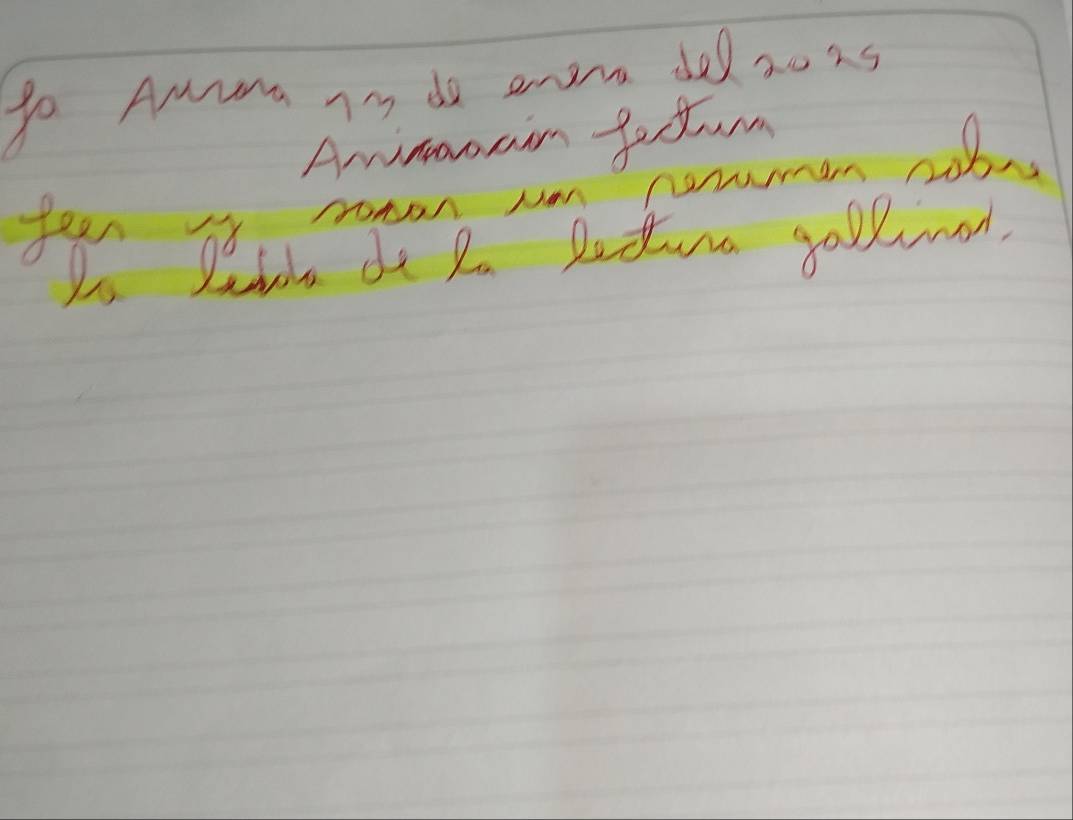 La Aurora 13 de enero del 2025
Animación Lectura
Leer y sacar un resumen sobre
la leido de la lectura gallinas.